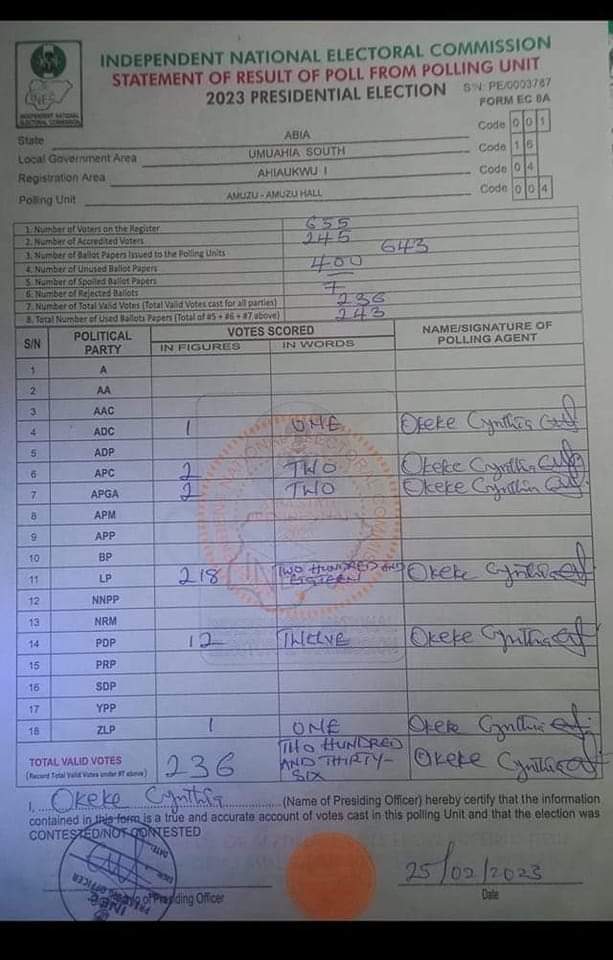 INDEPENDENT NATIONAL ELECTORAL COMMISSION
STATEMENT OF RESULT OF POLL FROM POLLING UNIT
2023 PRESIDENTIAL ELECTION S/N: PE/0003767
FORM EC 8A
INEC
INDEPENDENT NATIONAL ELECTORAL COMMISSION
State ABIA Code 0 0 1
Local Government Area UMUAHIA SOUTH Code 1 6
Registration Area AHIAUKWU I Code 0 4
Polling Unit AMUZU - AMUZU HALL Code 0 0 4
1. Number of Voters on the Register 655
2. Number of Accredited Voters 245
3. Number of Ballot Papers Issued to the Polling Units 643
4. Number of Unused Ballot Papers 400
5. Number of Spoiled Ballot Papers —
6. Number of Rejected Ballots 7
7. Number of Total Valid Votes (Total Valid Votes cast for all parties) 236
8. Total Number of Used Ballots Papers (Total of #5 + #6 + #7 above) 243
S/N POLITICAL PARTY VOTES SCORED NAME/SIGNATURE OF POLLING AGENT
IN FIGURES IN WORDS
1 A
2 AA
3 AAC
4 ADC 1 ONE Okeke Cynthia
5 ADP
6 APC 2 TWO Okeke Cynthia
7 APGA 2 TWO Okeke Cynthia
8 APM
9 APP
10 BP
11 LP 218 TWO HUNDRED AND EIGTEEN Okeke Cynthia
12 NNPP
13 NRM
14 PDP 12 TWELVE Okeke Cynthia
15 PRP
16 SDP
17 YPP
18 ZLP 1 ONE Okeke Cynthia
TOTAL VALID VOTES 236 TWO HUNDRED AND THIRTY-SIX Okeke Cynthia
(Record Total Valid Votes under #7 above)
I, Okeke Cynthia (Name of Presiding Officer) hereby certify that the information
contained in this form is a true and accurate account of votes cast in this polling Unit and that the election was
CONTESTED/NOT CONTESTED
25/02/2023
of Presiding Officer Date
INEC